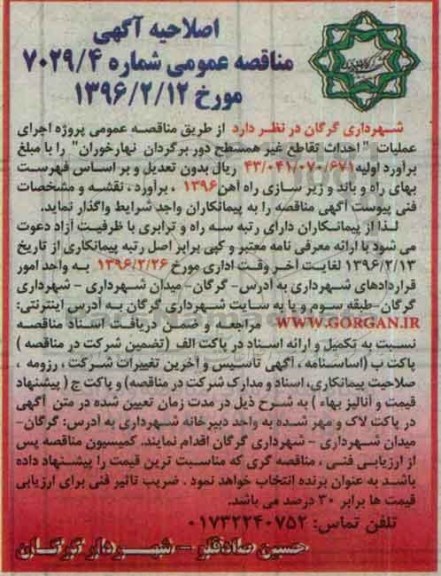 اصلاحیه آگهی
مناقصه عمومی شماره ۷۰۲۹/۴
مورخ ۱۳۹۶/۲/۱۲
شهرداری گرگان در نظر دارد از طریق مناقصه عمومی پروژه اجرای
عملیات "احداث تقاطع غیر همسطح دور برگردان نهارخوران" را با مبلغ
برآورد اولیه ۴۳/۰۴۱/۰۷۰/۶۷۱ ریال بدون تعدیل و بر اساس فهرست
بهای راه و باند و زیر سازی راه آهن ۱۳۹۶ ، برآورد ، نقشه و مشخصات
فنی پیوست آگهی مناقصه را به پیمانکاران واجد شرایط واگذار نماید.
لـذا از پیمانکاران دارای رتبه سه راه و ترابری با ظرفیت آزاد دعوت
می شود با ارائه معرفی نامه معتبر و کپی برابر اصل رتبه پیمانکاری از تاریخ
۱۳۹۶/۲/۱۳ لغایت آخر وقت اداری مورخ ۱۳۹۶/۲/۲۶ به واحد امور
قراردادهای شهرداری به آدرس- گرگان- میدان شهرداری - شهرداری
گرگان -طبقه سوم و یا به سایت شهرداری گرگان به آدرس اینترنتی:
WWW.GORGAN.IR مراجعه و ضمن دریافت اسناد مناقصه
نسبت به تکمیل و ارائه اسناد در پاکت الف (تضمین شرکت در مناقصه )
پاکت ب (اساسنامه ، آگهی تاسیس و آخرین تغییرات شرکت ، رزومه ،
صلاحیت پیمانکاری، اسناد و مدارک شرکت در مناقصه) و پاکت ج ( پیشنهاد
قیمت و آنالیز بهاء ) به شرح ذیل در مدت زمان تعیین شده در متن آگهی
در پاکت لاک و مهر شده به واحد دبیرخانه شهرداری به آدرس: گرگان-
میدان شهرداری - شهرداری گرگان اقدام نمایند. کمیسیون مناقصه پس
از ارزیابی فنی ، مناقصه گری که مناسبت ترین قیمت را پیشنهاد داده
باشد به عنوان برنده انتخاب خواهد نمود . ضریب تاثیر فنی برای ارزیابی
قیمت ها برابر ۳۰ درصد می باشد.
تلفن تماس: ۰۱۷۳۲۲۴۰۷۵۲
حسین صادقلو - شهردار گرگان